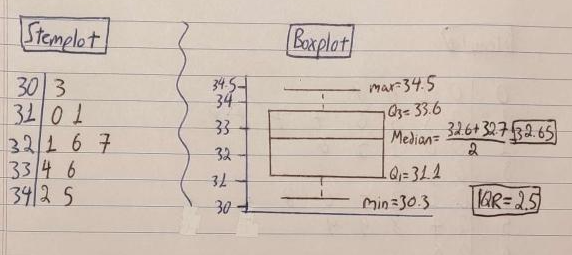 Stemplot
30 | 3
31 | 0 1
32 | 1 6 7
33 | 4 6
34 | 2 5
Boxplot
34.5
34
33
32
31
30
max=34.5
Q3=33.6
Median= 32.6+32.7/2 32.65
Q1=31.1
min=30.3
IQR=2.5